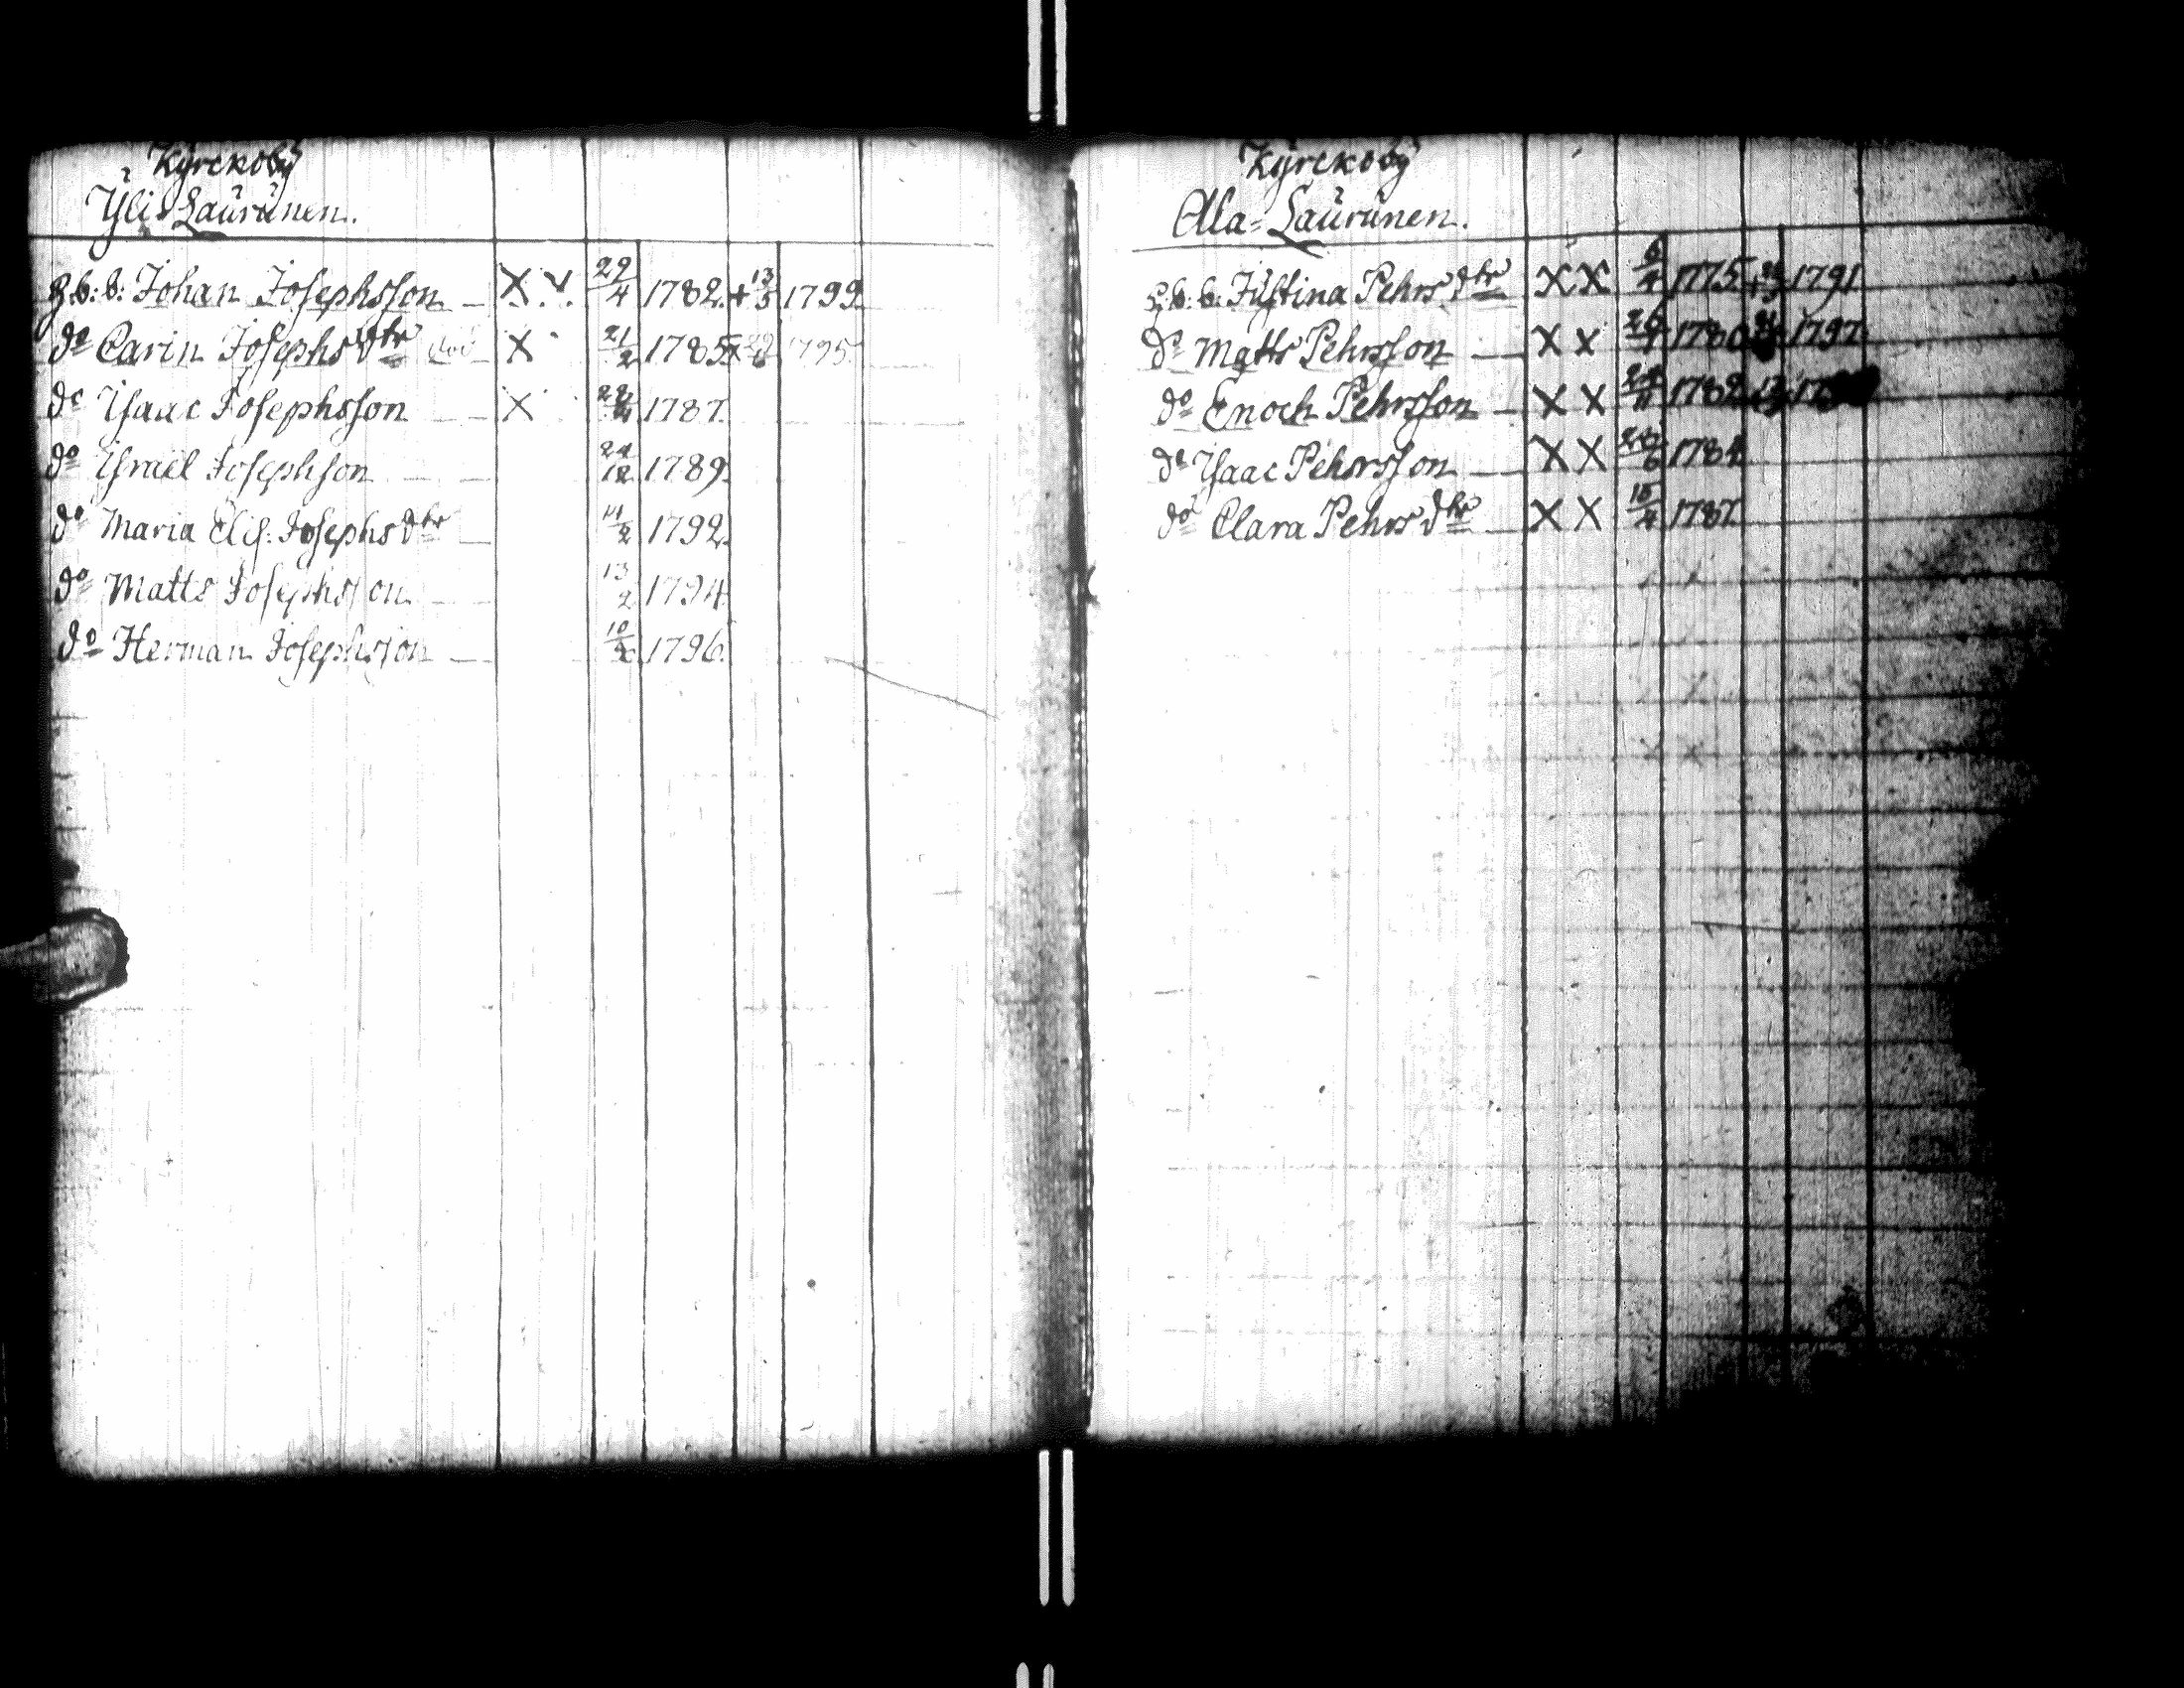 Kyrckoby
Yli-Laurunen.
g.b:b: Johan Josephsson X 29/4 1782. + 13/5 1799
do Carin Josephsdtr X 21/2 1785 1795.
dc Isaac Josephsson X 1787.
do Israel Josephsson 1789.
do Maria Elis. Josephsdtr 11/2 1792.
do Matts Josephsson 13/2 1794
do Herman Josephsson 1796.
Kyrckoby
Ala-Laurunen.
g.b:b: Justina Pehrsdtr X X 6/4 1775 1791
do Matts Pehrsson X X 1780 1797
do Enoch Pehrsson X X 1782
do Isaac Pehrsson X X 1784
do Clara Pehrsdtr X X 15/4 1787.